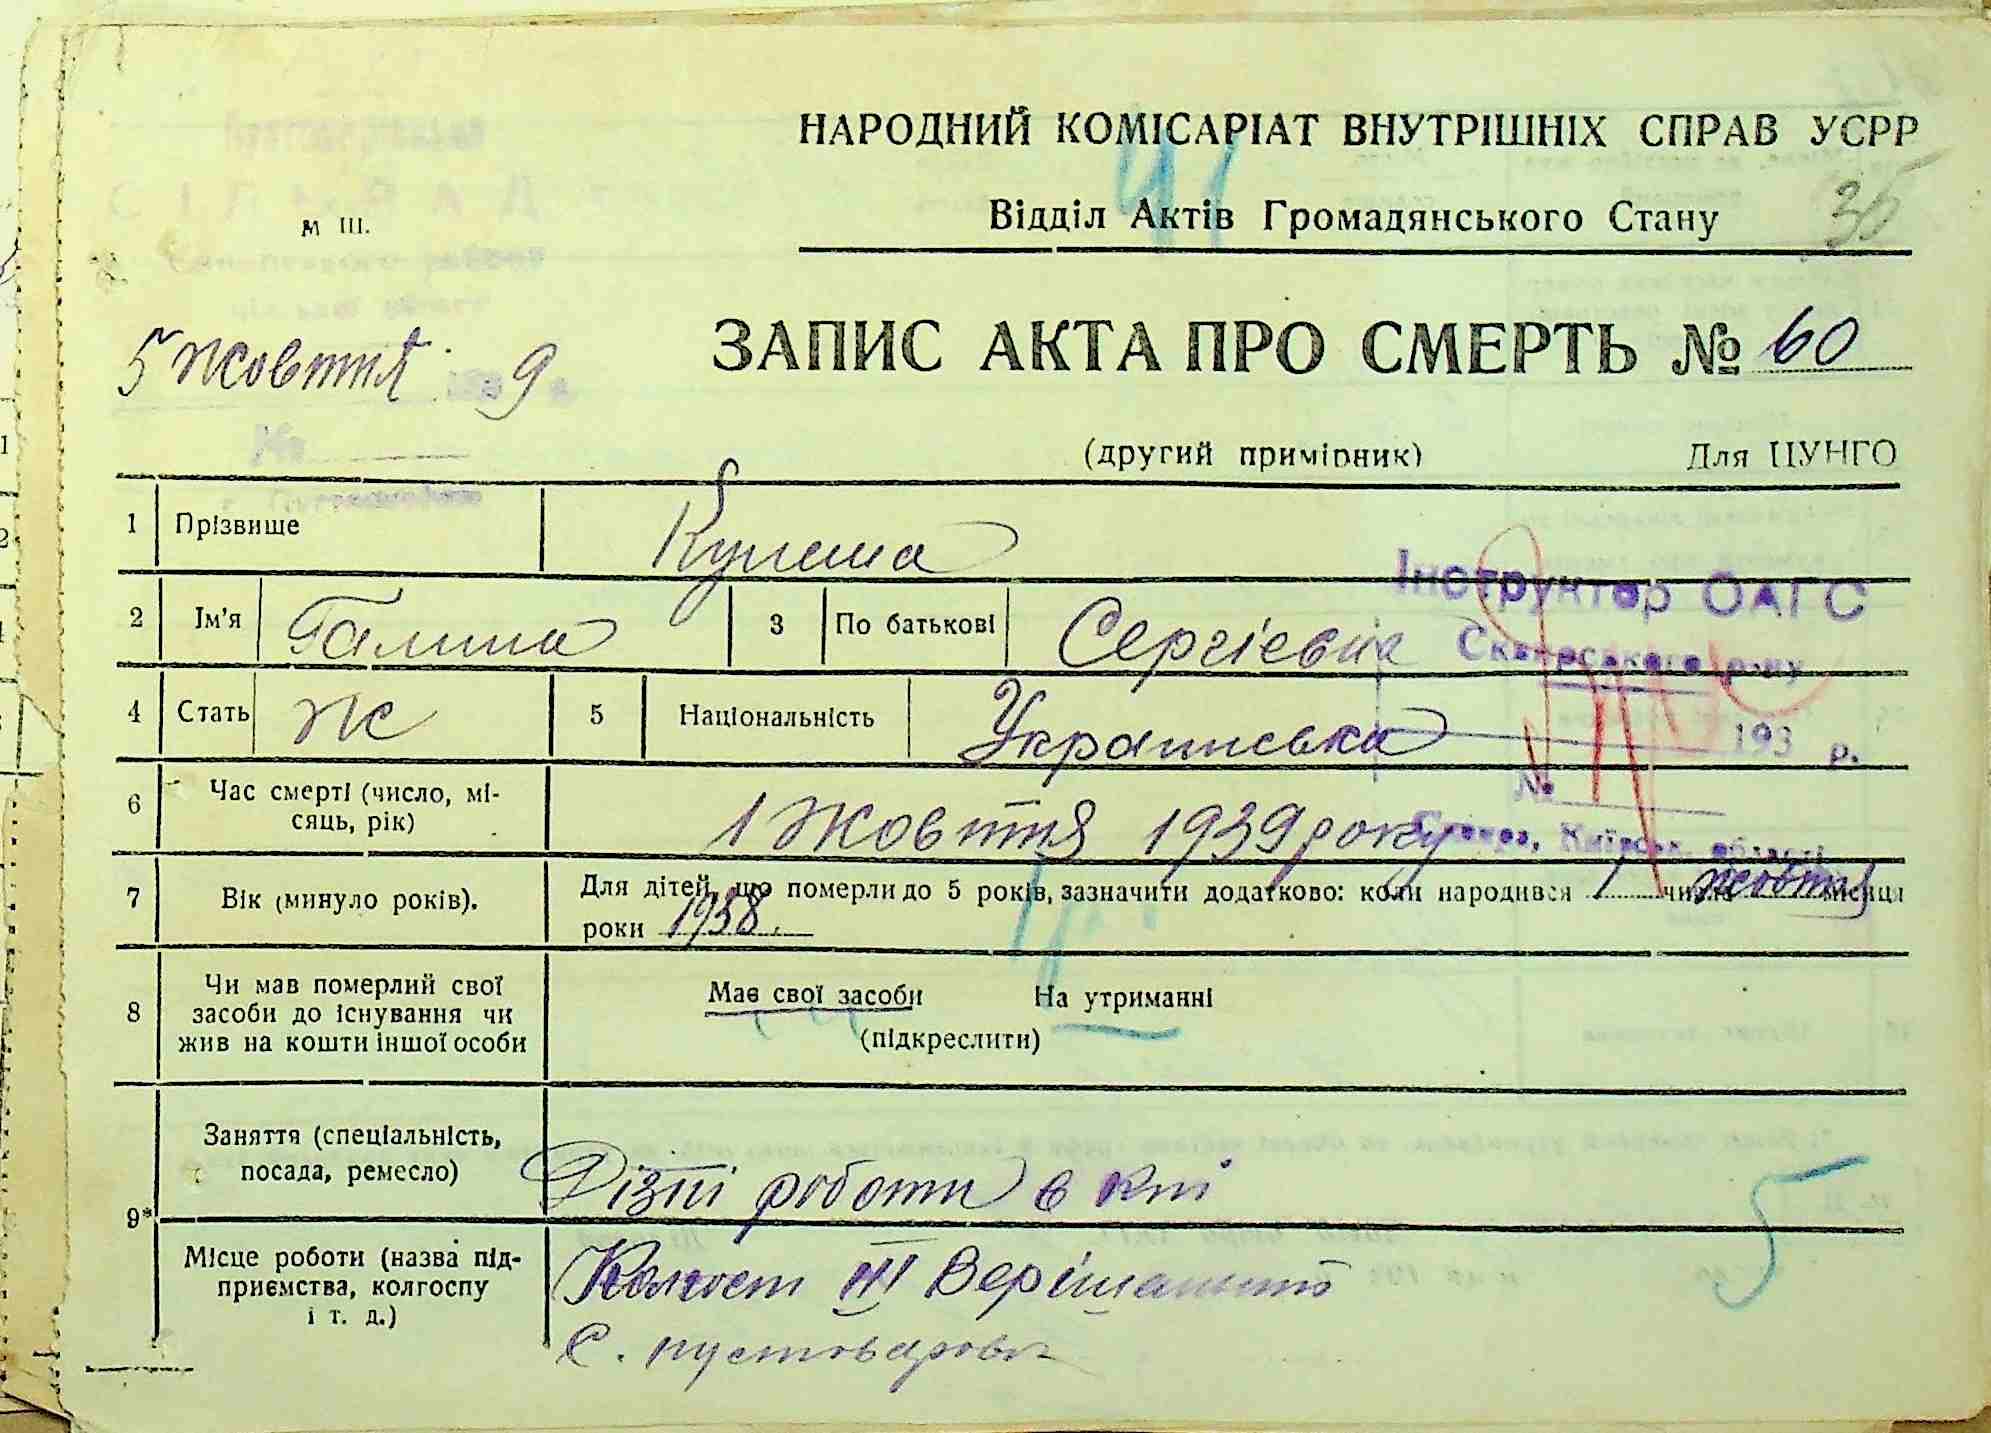 НАРОДНИЙ КОМІСАРІАТ ВНУТРІШНІХ СПРАВ УСРР
Відділ Актів Громадянського Стану
41
36
м III.
5 жовтня 193 9 р.
ЗАПИС АКТА ПРО СМЕРТЬ № 60
(другий примірник) Для ЦУНГО
№
1 Прізвище Кулеша
Інструктор ОАГС
2 Ім'я Галина 3 По батькові Сергієвна
Сквирського р-ну
4 Стать ж 5 Національність Украинська
193 р.
№
6 Час смерті (число, мі-
сяць, рік) 1 жовтня 1939 року
Сквира, Київськ. області
7 Вік (минуло років). Для дітей, що померли до 5 років, зазначити додатково: коли народився 1 числа жовтня місяця
роки 1938.
8 Чи мав померлий свої
засоби до існування чи
жив на кошти іншої особи
Має свої засоби На утриманні
(підкреслити)
9*
Заняття (спеціальність,
посада, ремесло) Різні роботи в кті
5
Місце роботи (назва під-
приємства, колгоспу
і т. д.)
Колгосп III Верішальний
С. пустоваровка